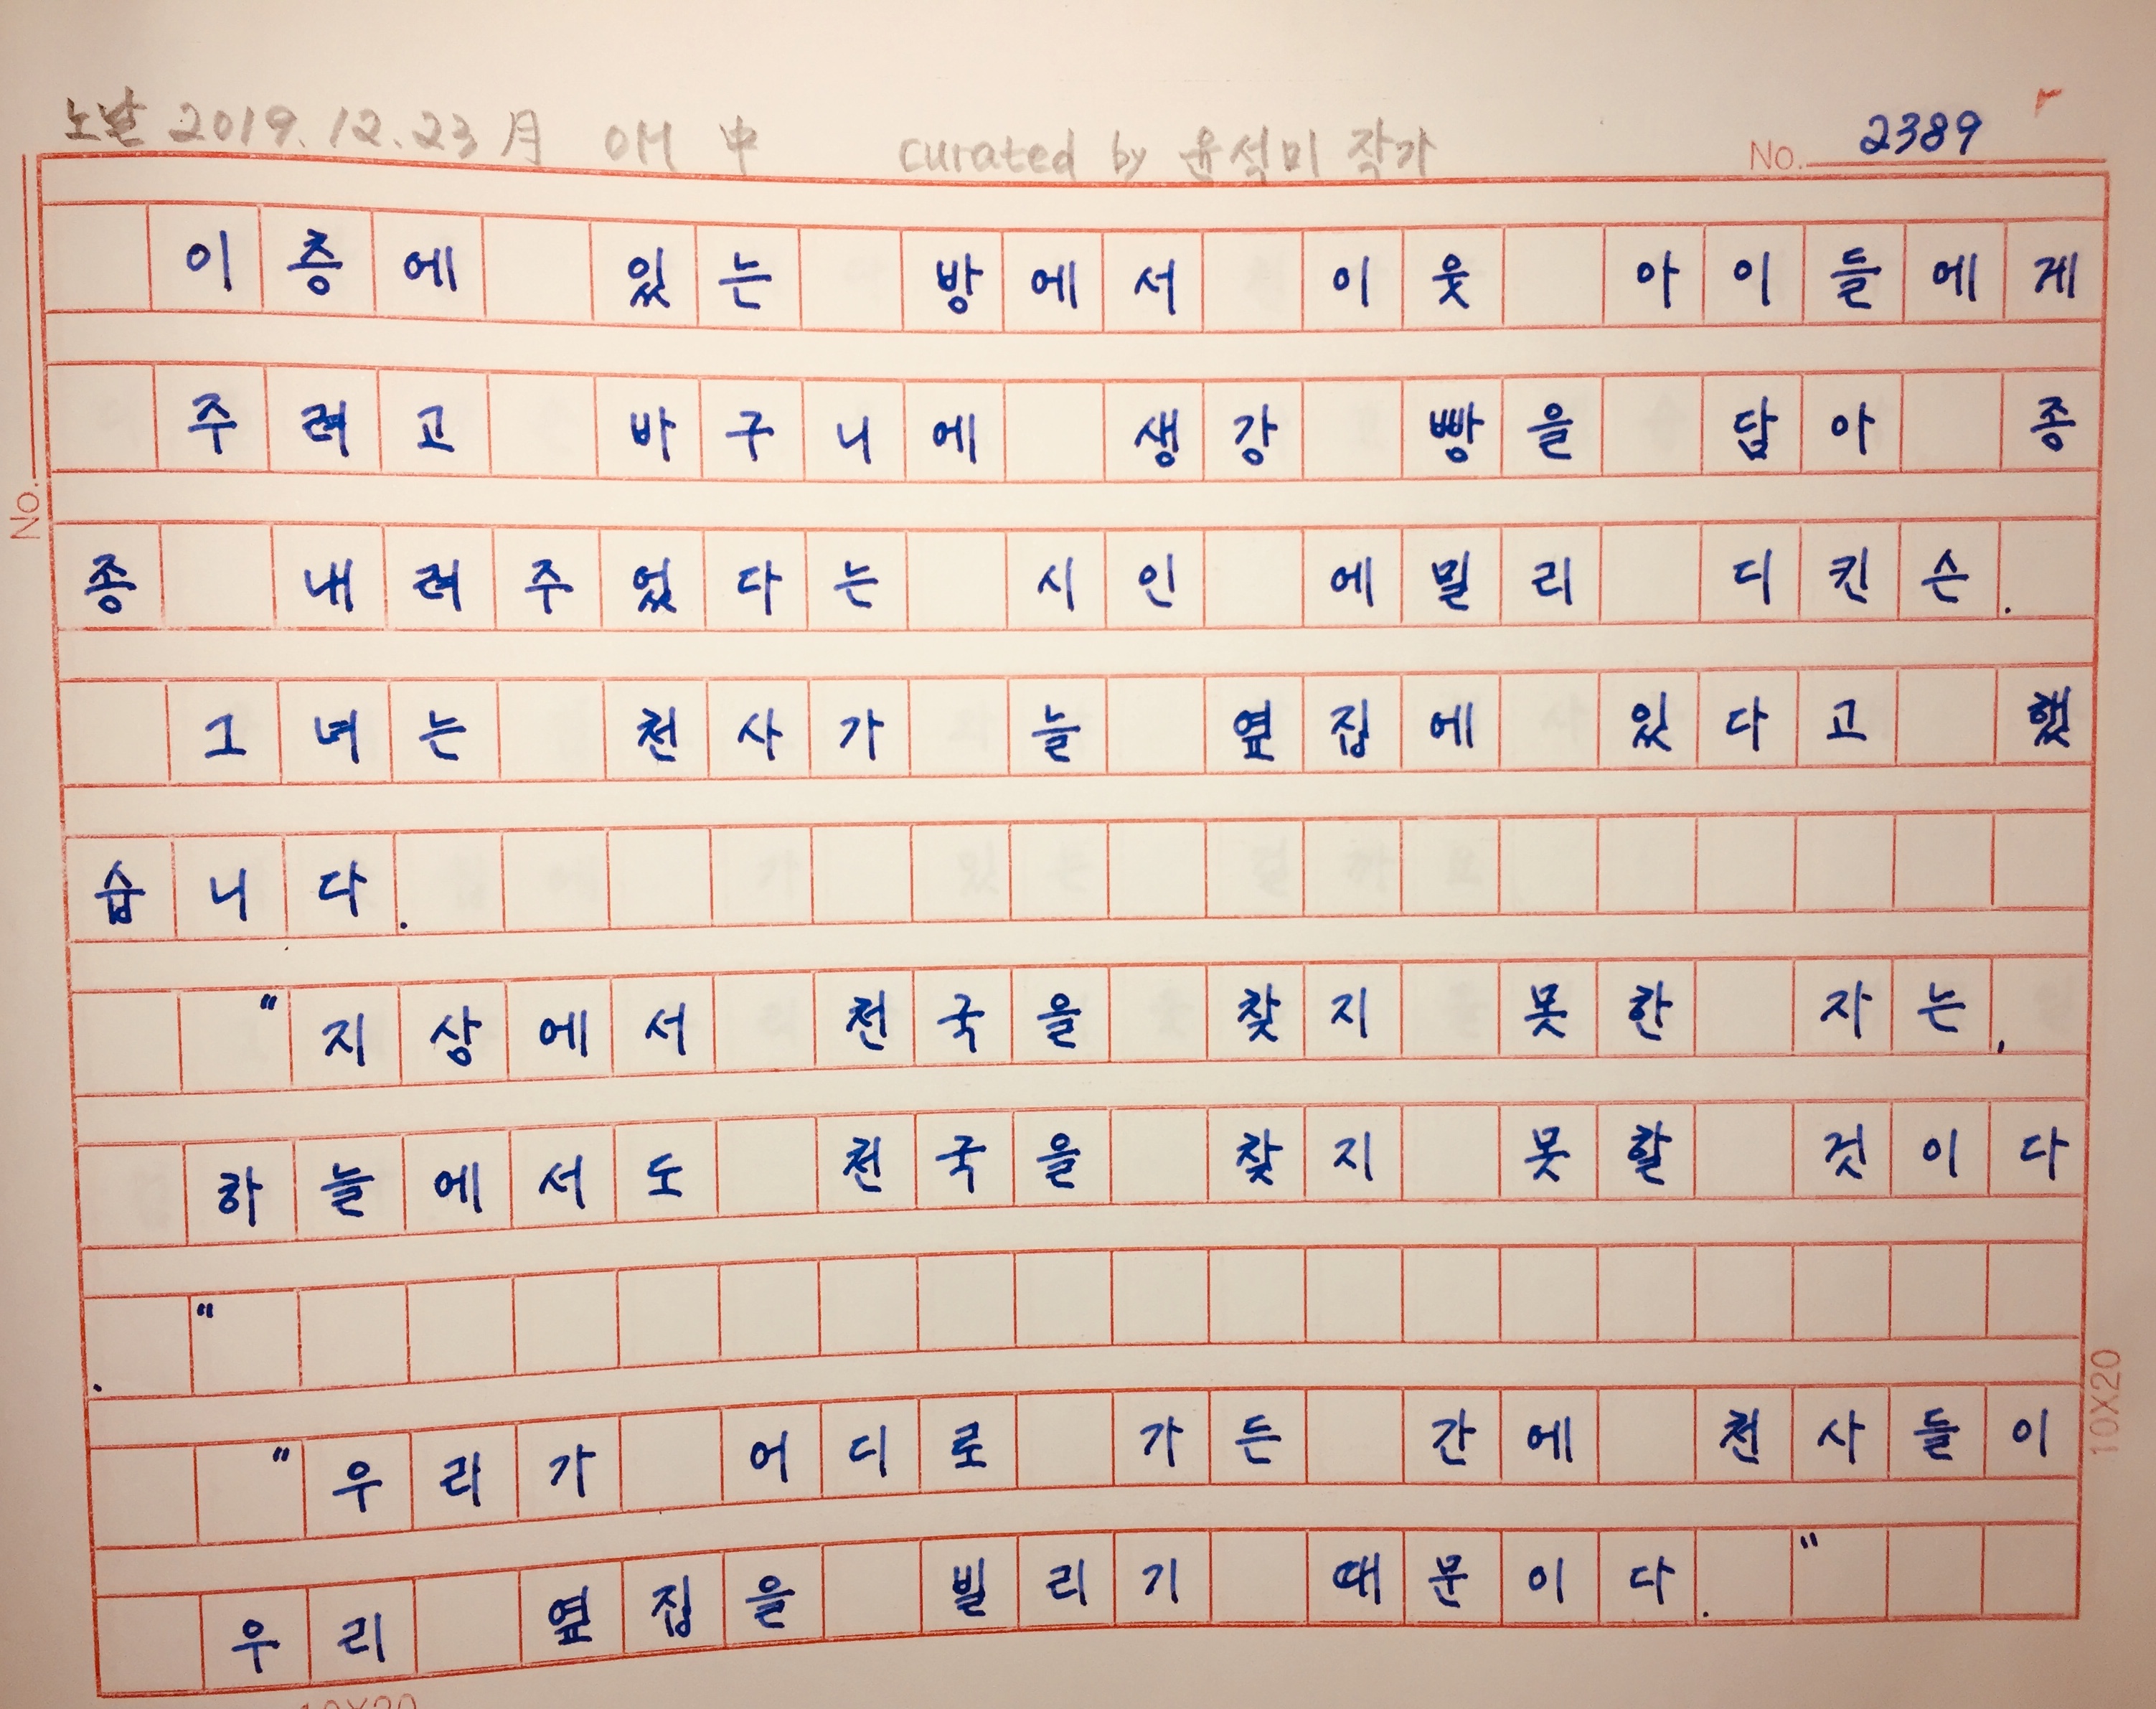 노날 2019.12.23月 OH 中 curated by 윤석미 작가 No. 2389
이층에 있는 방에서 이웃 아이들에게
주려고 바구니에 생강 빵을 담아 종
종 내려주었다는 시인 에밀리 디킨슨.
그녀는 천사가 늘 옆집에 있다고 했
습니다.
"지상에서 천국을 찾지 못한 자는,
하늘에서도 천국을 찾지 못할 것이다
."
"우리가 어디로 가든 간에 천사들이
우리 옆집을 빌리기 때문이다."
No.
10X20
10X20